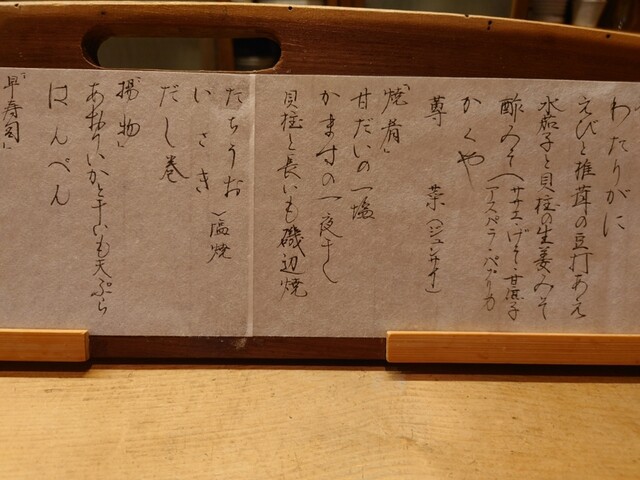 わたりがに
えびと椎茸の豆打あえ
水茄子と貝柱の生姜みそ
酢みそ(サザエ・げそ・甘海子
アスパラ・パプリカ)
かくや
蓴菜(ジュンサイ)
「焼肴」
甘だいの一塩
かますの一夜干し
貝柱と長いも磯辺焼
たちうお
いさき
塩焼
だし巻
「揚物」
あおりいかと干いも天ぷら
はんぺん
「早寿司」